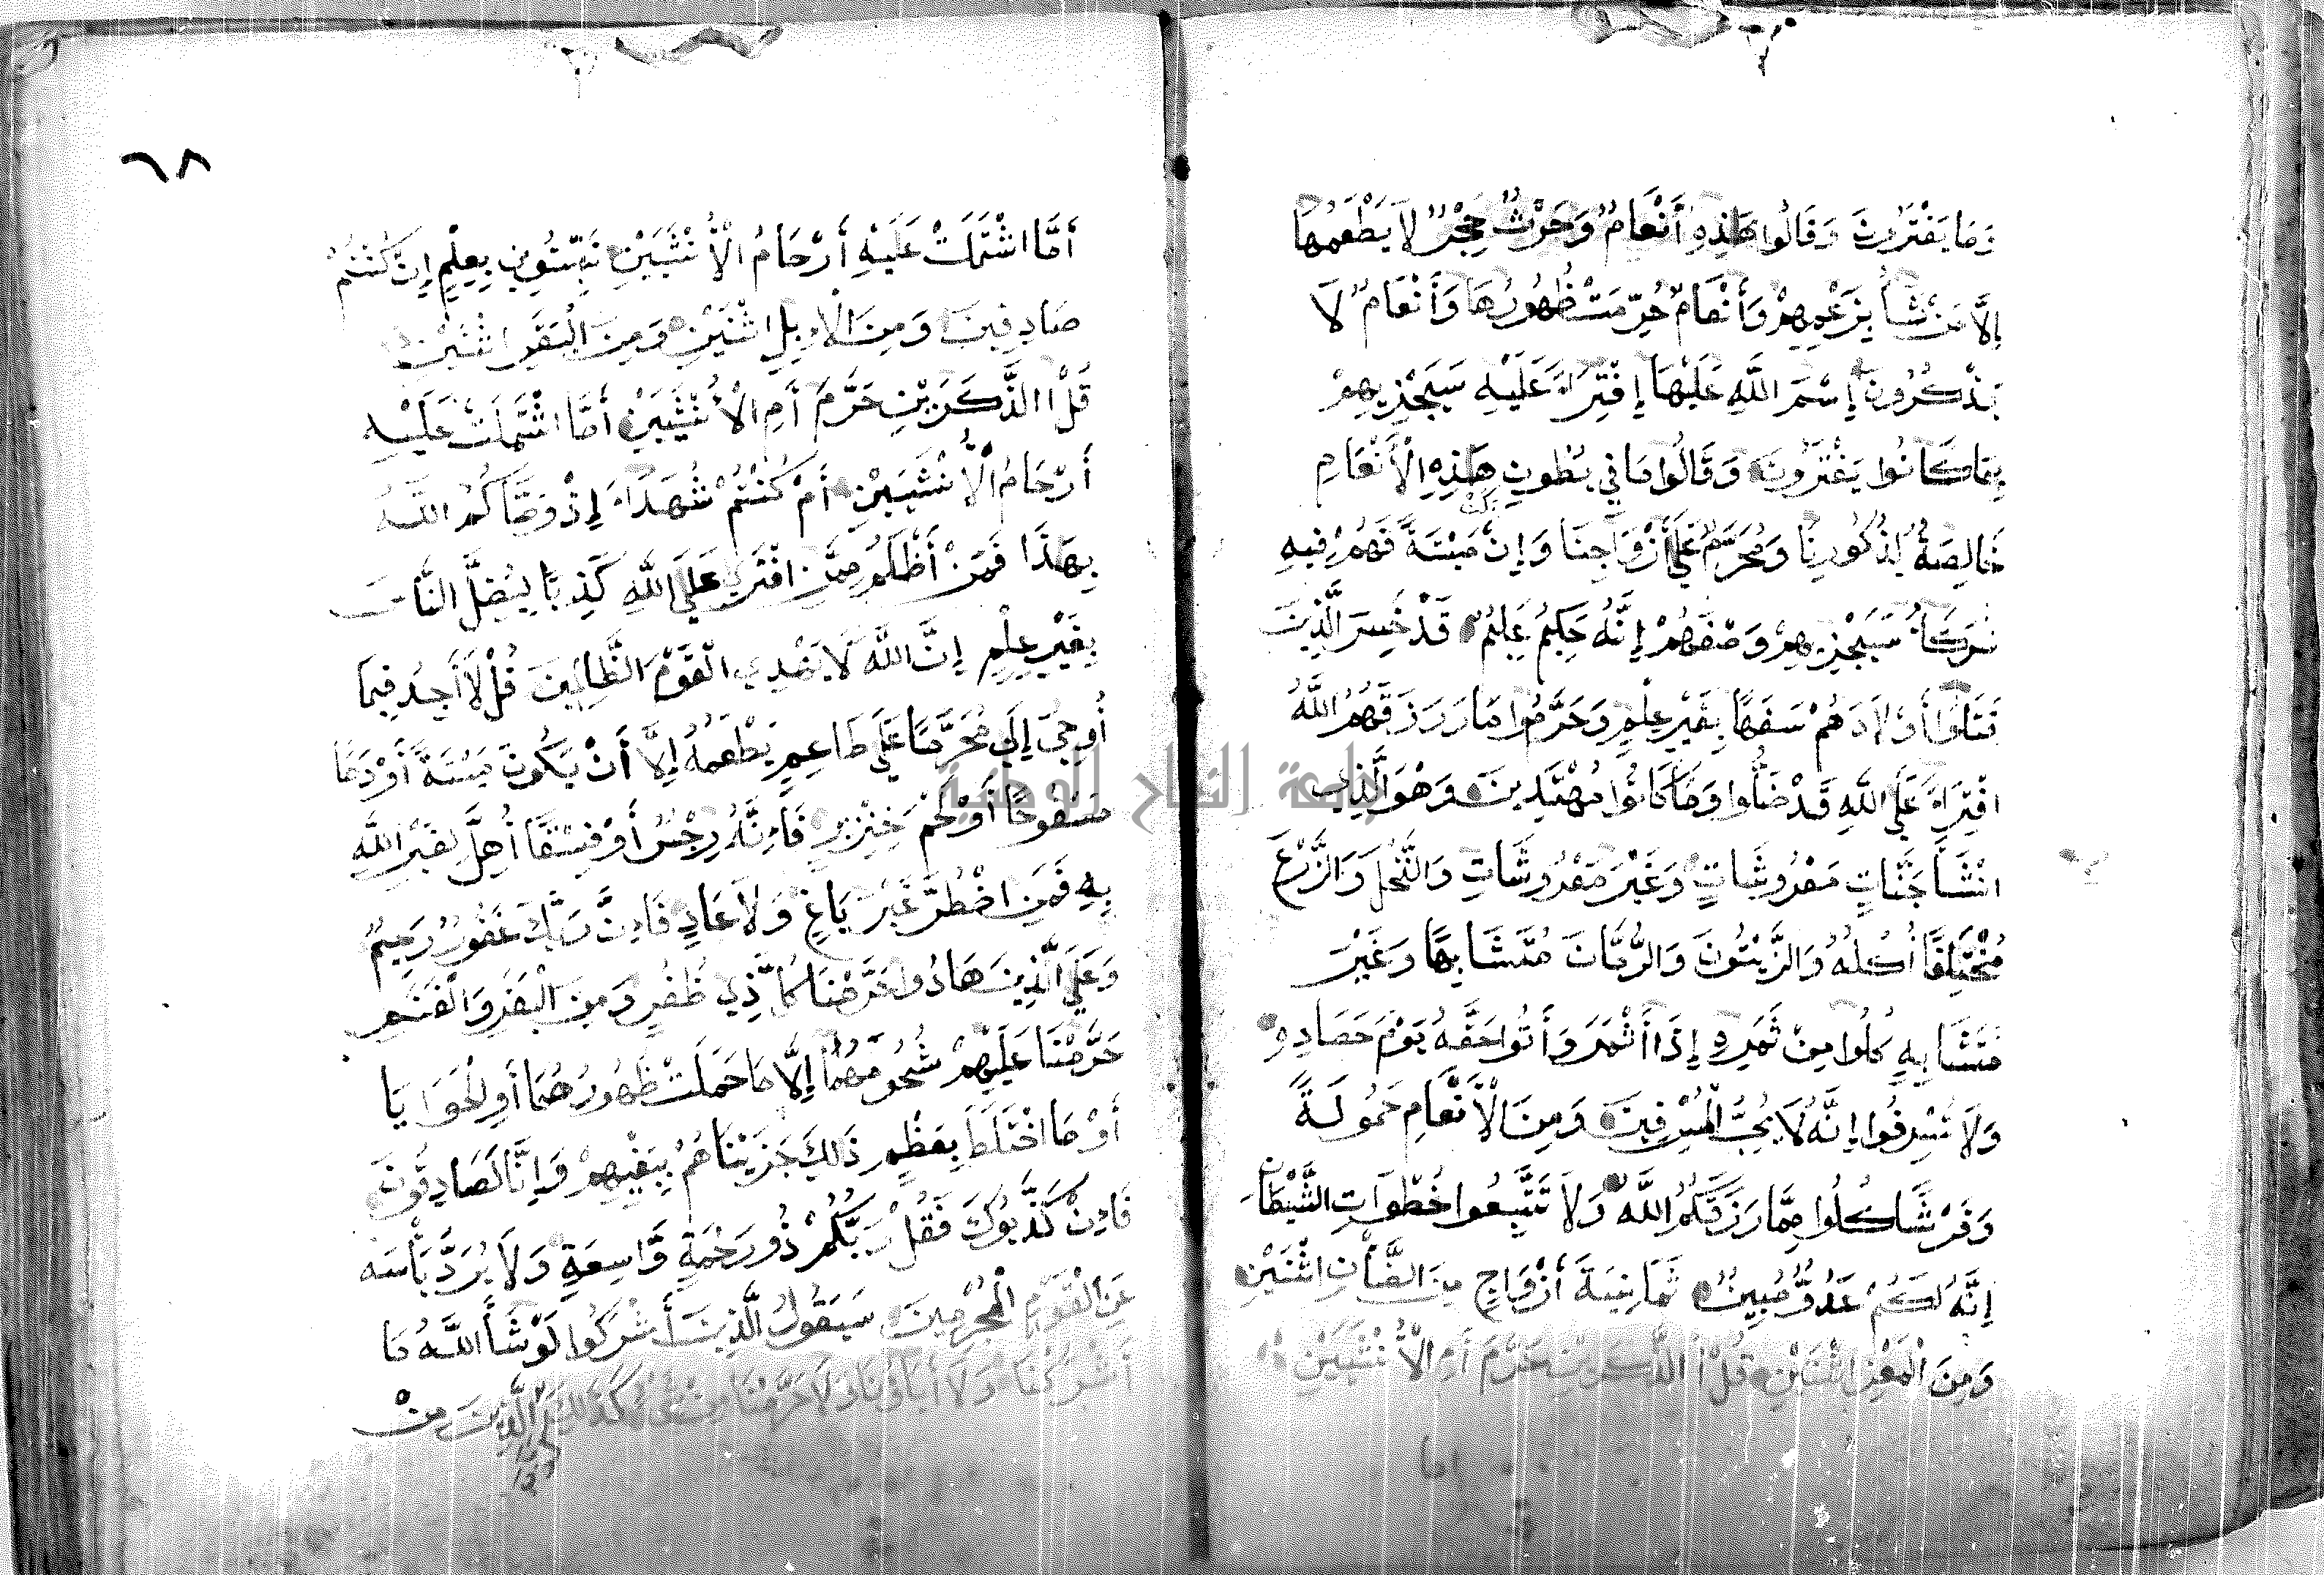 وَمَا يَفْتَرُونَ وَقَالُوا هَذِهِ أَنْعَامٌ وَحَرْثٌ حِجْرٌ لَا يَطْعَمُهَا
إِلَّا مَنْ نَشَأُ بِزَعْمِهِمْ وَأَنْعَامٌ حُرِّمَتْ ظُهُورُهَا وَأَنْعَامٌ لَا
يَذْكُرُونَ إِسْمَ اللَّهِ عَلَيْهَا إِفْتِرَاءً عَلَيْهِ سَيَجْزِيهِمْ
بِمَا كَانُوا يَفْتَرُونَ وَقَالُوا مَا فِي بُطُونِ هَذِهِ الْأَنْعَامِ
خَالِصَةٌ لِذُكُورِنَا وَمُحَرَّمٌ عَلَى أَزْوَاجِنَا وَإِنْ يَكُنْ مَيْتَةً فَهُمْ فِيهِ
شُرَكَاءُ سَيَجْزِيهِمْ وَصْفَهُمْ إِنَّهُ حَكِيمٌ عَلِيمٌ قَدْ خَسِرَ الَّذِينَ
قَتَلُوا أَوْلَادَهُمْ سَفَهًا بِغَيْرِ عِلْمٍ وَحَرَّمُوا مَا رَزَقَهُمُ اللَّهُ
افْتِرَاءً عَلَى اللَّهِ قَدْ ضَلُّوا وَمَا كَانُوا مُهْتَدِينَ وَهْوَ الَّذِي
انْشَأَ جَنَّاتٍ مَعْرُوشَاتٍ وَغَيْرَ مَعْرُوشَاتٍ وَالنَّخْلَ وَالزَّرْعَ
مُخْتَلِفًا أُكُلُهُ وَالزَّيْتُونَ وَالرُّمَّانَ مُتَشَابِهًا وَغَيْرَ
مُتَشَابِهٍ كُلُوا مِنْ ثَمَرِهِ إِذَا أَثْمَرَ وَأَتُوا حَقَّهُ يَوْمَ حَصَادِهِ
وَلَا تُسْرِفُوا إِنَّهُ لَا يُحِبُّ الْمُسْرِفِينَ وَمِنَ الْأَنْعَامِ حَمُولَةً
وَفَرْشًا كُلُوا مِمَّا رَزَقَكُمُ اللَّهُ وَلَا تَتَّبِعُوا خُطُوَاتِ الشَّيْطَانِ
إِنَّهُ لَكُمْ عَدُوٌّ مُبِينٌ ثَمَانِيَةَ أَزْوَاجٍ مِنَ الضَّأْنِ اثْنَيْنِ
وَمِنَ الْمَعْزِ اثْنَيْنِ قُلْ أَالذَّكَرَيْنِ حَرَّمَ أَمِ الْأُنْثَيَيْنِ
اما
٦٨
أَمَّا اشْتَمَلَتْ عَلَيْهِ أَرْحَامُ الْأُنْثَيَيْنِ نَبِّئُونِي بِعِلْمٍ إِنْ كُنْتُمْ
صَادِقِينَ وَمِنَ الْإِبِلِ اثْنَيْنِ وَمِنَ الْبَقَرِ اثْنَيْنِ
قُلْ أَالذَّكَرَيْنِ حَرَّمَ أَمِ الْأُنْثَيَيْنِ أَمَّا اشْتَمَلَتْ عَلَيْهِ
أَرْحَامُ الْأُنْثَيَيْنِ أَمْ كُنْتُمْ شُهَدَاءَ إِذْ وَصَّاكُمُ اللَّهُ
بِهَذَا فَمَنْ أَظْلَمُ مِمَّنِ افْتَرَى عَلَى اللَّهِ كَذِبًا لِيُضِلَّ النَّاسَ
بِغَيْرِ عِلْمٍ إِنَّ اللَّهَ لَا يَهْدِي الْقَوْمَ الظَّالِمِينَ قُلْ لَا أَجِدُ فِيمَا
أُوحِيَ إِلَيَّ مُحَرَّمًا عَلَى طَاعِمٍ يَطْعَمُهُ إِلَّا أَنْ يَكُونَ مَيْتَةً أَوْ دَمًا
مَسْفُوحًا أَوْ لَحْمَ خِنْزِيرٍ فَإِنَّهُ رِجْسٌ أَوْ فِسْقًا أُهِلَّ لِغَيْرِ اللَّهِ
بِهِ فَمَنِ اضْطُرَّ غَيْرَ بَاغٍ وَلَا عَادٍ فَإِنَّ رَبَّكَ غَفُورٌ رَحِيمٌ
وَعَلَى الَّذِينَ هَادُوا حَرَّمْنَا كُلَّ ذِي ظُفُرٍ وَمِنَ الْبَقَرِ وَالْغَنَمِ
حَرَّمْنَا عَلَيْهِمْ شُحُومَهُمَا إِلَّا مَا حَمَلَتْ ظُهُورُهُمَا أَوِ الْحَوَايَا
أَوْ مَا اخْتَلَطَ بِعَظْمٍ ذَلِكَ جَزَيْنَاهُمْ بِبَغْيِهِمْ وَإِنَّا لَصَادِقُونَ
فَإِنْ كَذَّبُوكَ فَقُلْ رَبُّكُمْ ذُو رَحْمَةٍ وَاسِعَةٍ وَلَا يُرَدُّ بَأْسُهُ
عَنِ الْقَوْمِ الْمُجْرِمِينَ سَيَقُولُ الَّذِينَ أَشْرَكُوا لَوْ شَاءَ اللَّهُ مَا
أَشْرَكْنَا وَلَا أَبَاؤُنَا وَلَا حَرَّمْنَا مِنْ شَيْءٍ كَذَلِكَ الَّذِينَ مِنْ
جامعة النجاح الوطنية